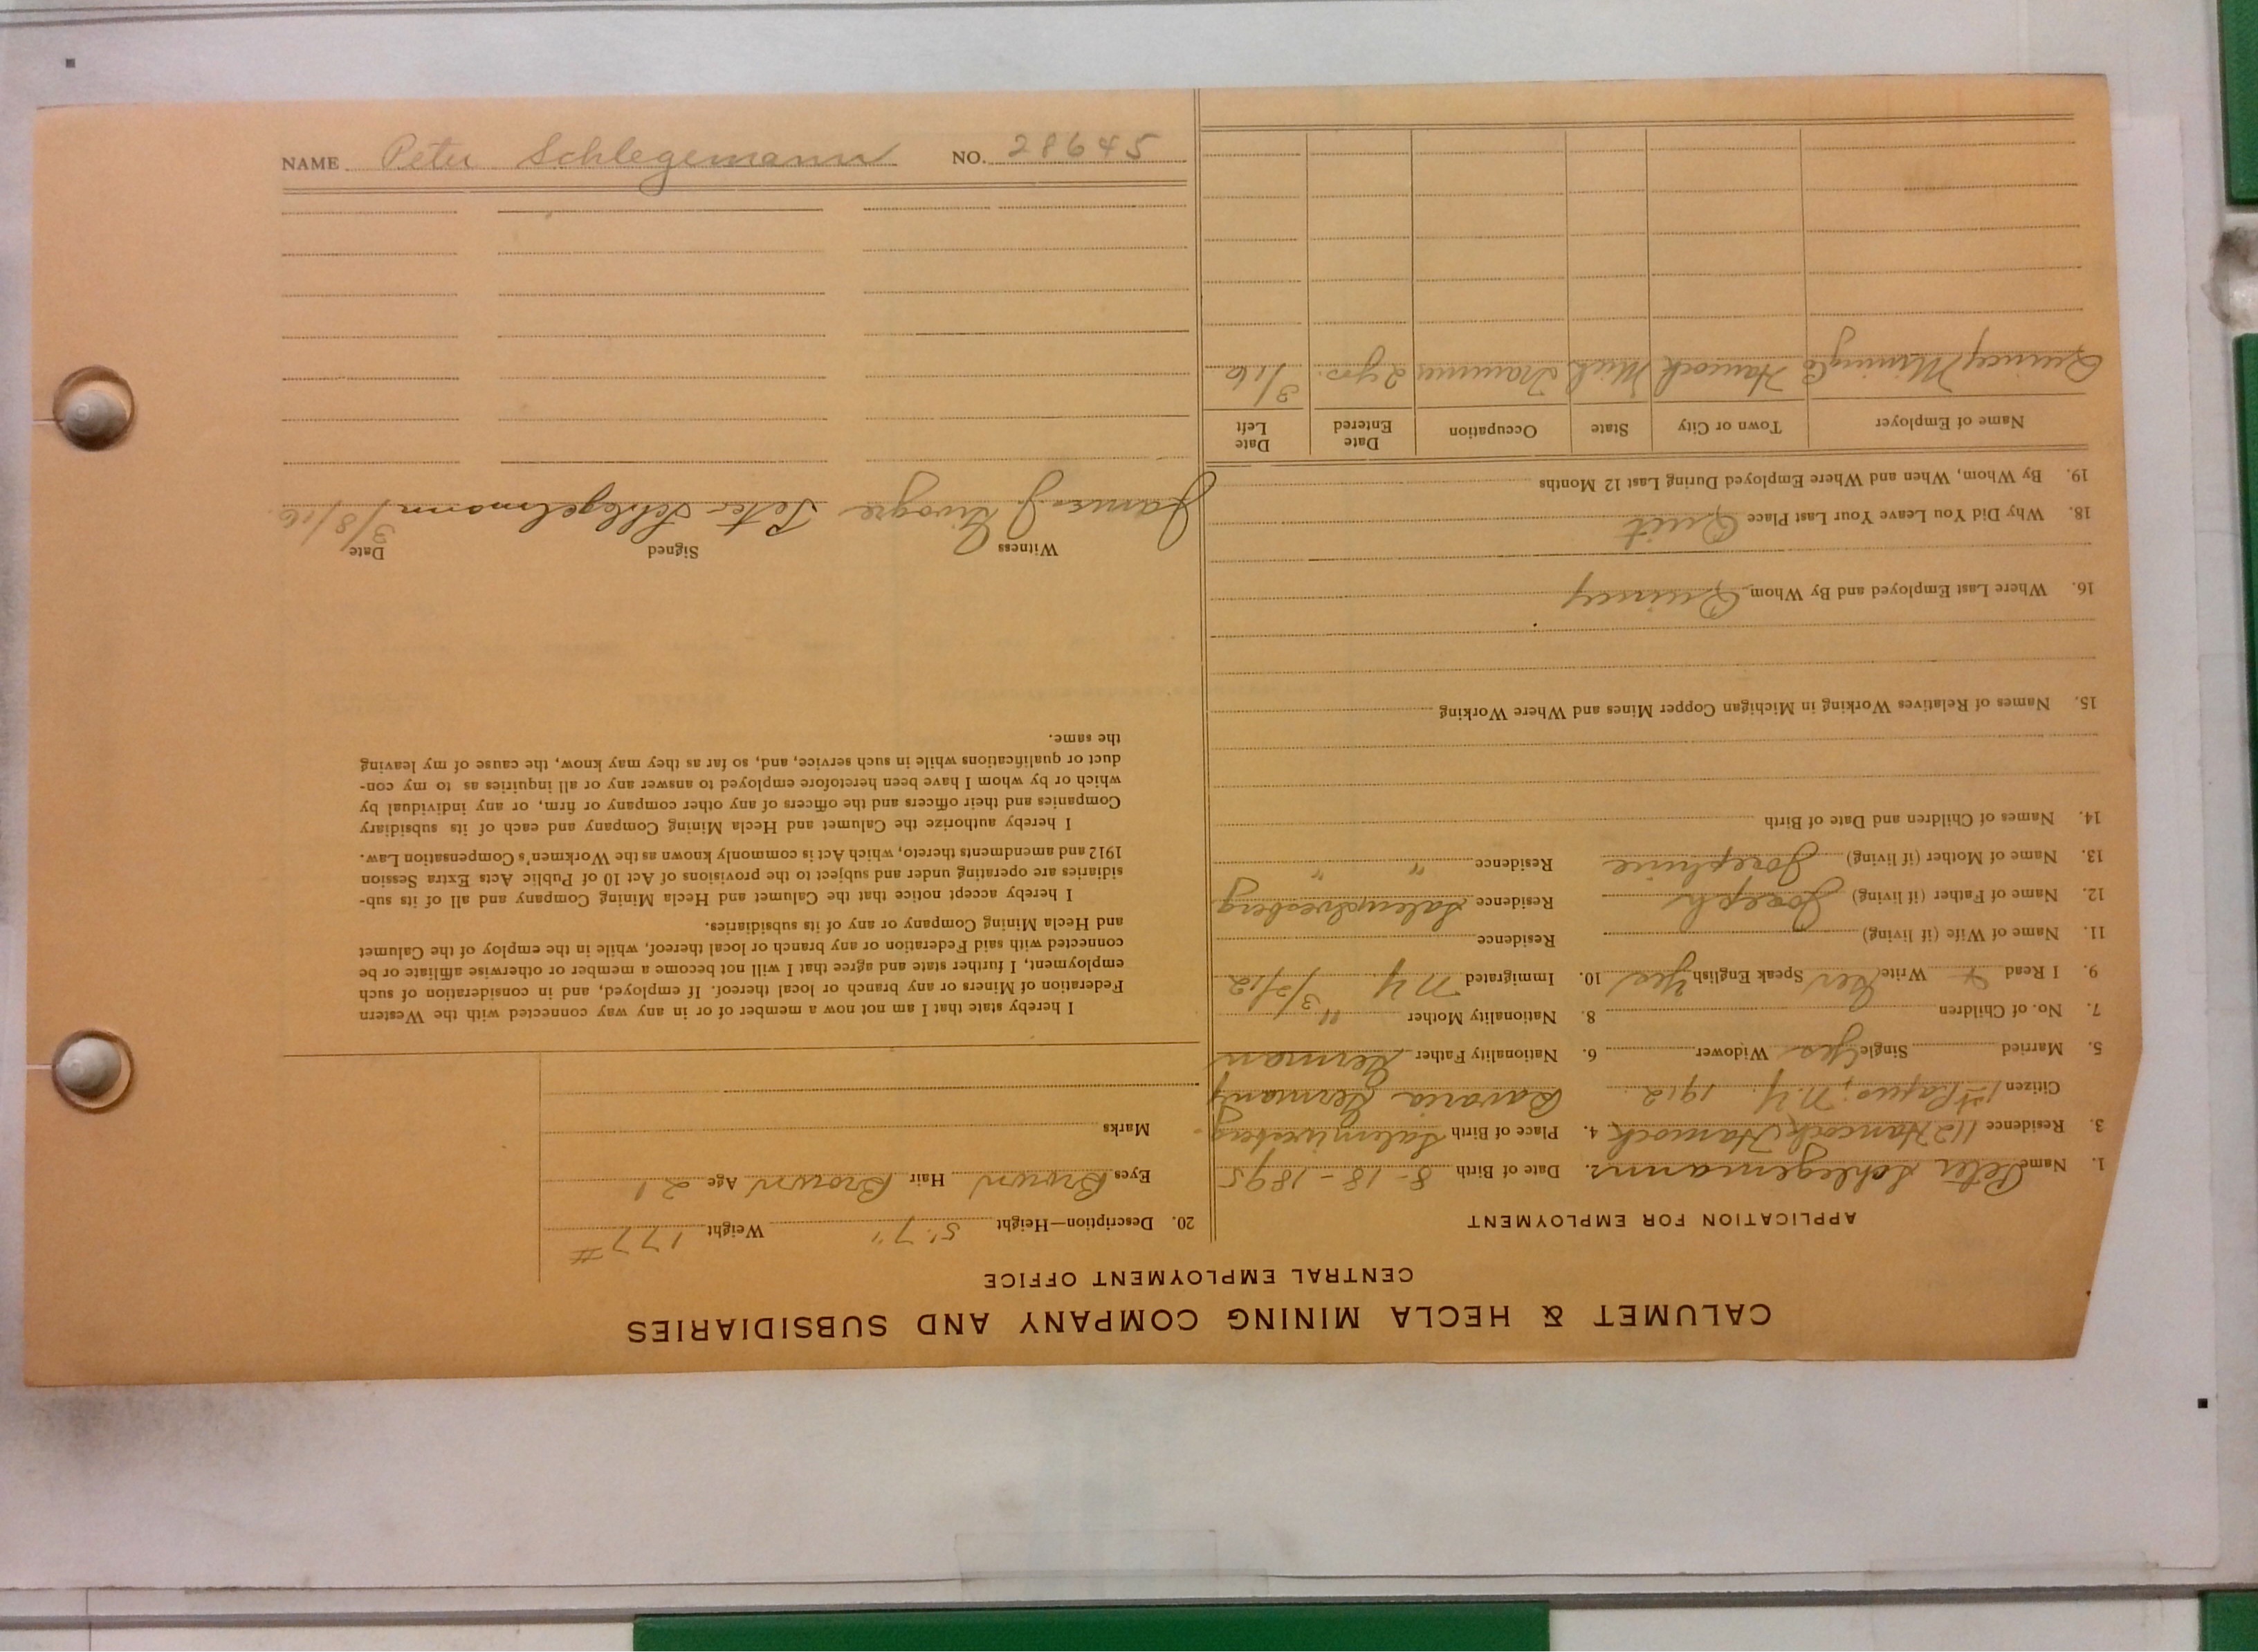 NAME Peter Schlegemann NO. 28645
CALUMET & HECLA MINING COMPANY AND SUBSIDIARIES
CENTRAL EMPLOYMENT OFFICE
APPLICATION FOR EMPLOYMENT
1. Name Peter Schlegemann 2. Date of Birth 8-18-1895
3. Residence 112 Hancock, Hancock 4. Place of Birth
Citizen 1st Papers, N.Y. 1912 Bavaria Germany
5. Married Single Yes Widower 6. Nationality Father German
7. No. of Children 8. Nationality Mother "
9. I Read & Write Ger Speak English Yes 10. Immigrated N.Y. 3/2/12
11. Name of Wife (if living) Residence
12. Name of Father (if living) Joseph Residence
13. Name of Mother (if living) Josephine Residence " "
14. Names of Children and Date of Birth
15. Names of Relatives Working in Michigan Copper Mines and Where Working
16. Where Last Employed and By Whom Quincy
18. Why Did You Leave Your Last Place Quit
19. By Whom, When and Where Employed During Last 12 Months
Name of Employer Town or City State Occupation Date Entered Date Left
Quincy Mining Co Hancock Mich Trammer 2 yrs. 3/16
20. Description—Height 5' 7" Weight 177#
Eyes Brown Hair Brown Age 21
Marks
I hereby state that I am not now a member of or in any way connected with the Western
Federation of Miners or any branch or local thereof. If employed, and in consideration of such
employment, I further state and agree that I will not become a member or otherwise affiliate or be
connected with said Federation or any branch or local thereof, while in the employ of the Calumet
and Hecla Mining Company or any of its subsidiaries.
I hereby accept notice that the Calumet and Hecla Mining Company and all of its sub-
sidiaries are operating under and subject to the provisions of Act 10 of Public Acts Extra Session
1912 and amendments thereto, which Act is commonly known as the Workmen's Compensation Law.
I hereby authorize the Calumet and Hecla Mining Company and each of its subsidiary
Companies and their officers and the officers of any other company or firm, or any individual by
which or by whom I have been heretofore employed to answer any or all inquiries as to my con-
duct or qualifications while in such service, and, so far as they may know, the cause of my leaving
the same.
Witness Signed Date
James J. Peter Schlegelmann 3/8/16.